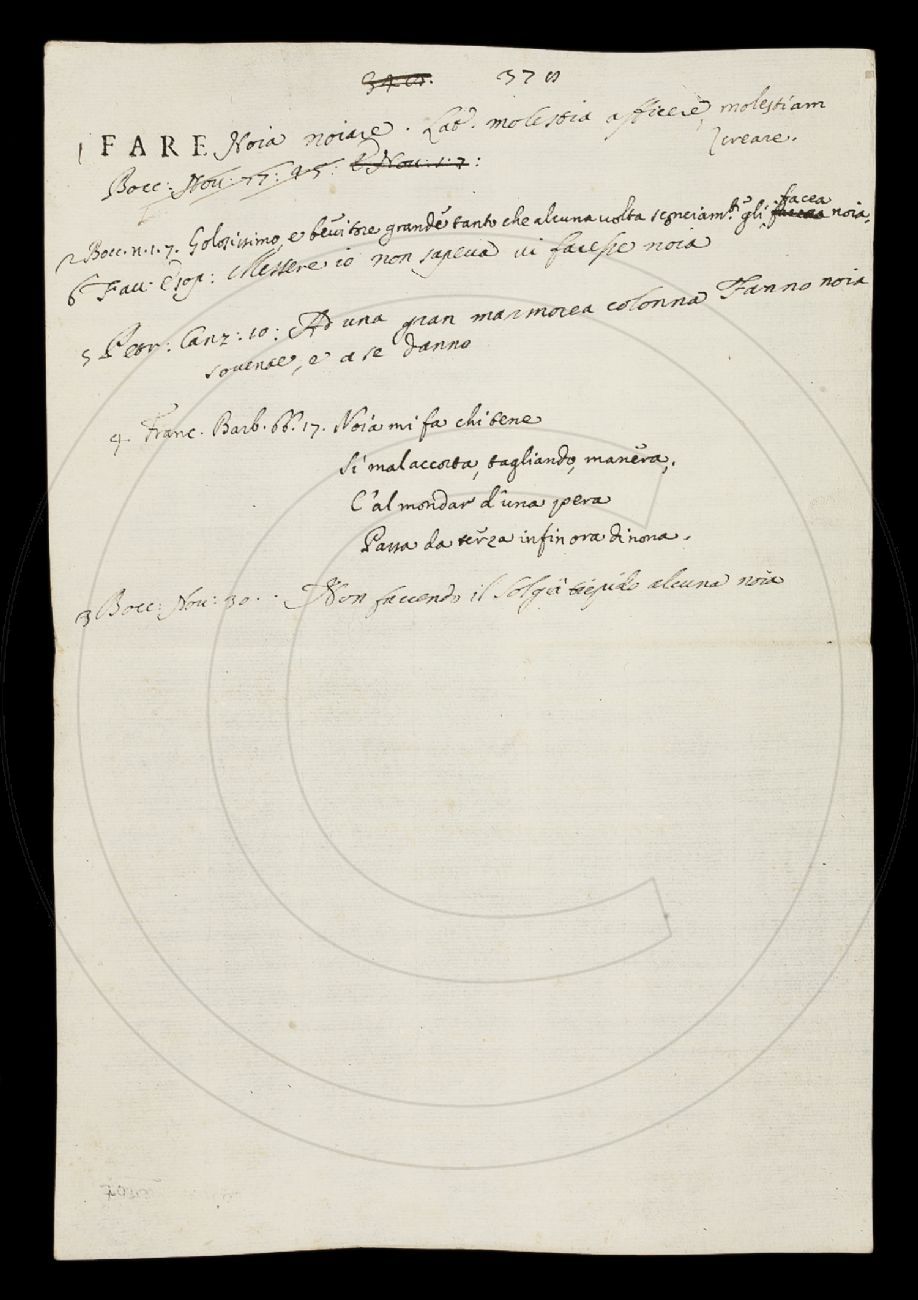 378
1 FARE Noia noiare. Lat. molestia afficere, molestiam
creare.
Bocc: Nov: 77: 25: E Nov: 1:7:
2 Bocc. n. 1. 7. Golosissimo, e bevitore grande tanto che alcuna volta sconciam.te gli facea noia.
6 Fav: Esop: Messere io non sapeva vi facesse noia
5 Petr: Canz: 10: Ad una gran marmorea colonna Fanno noia
sovente, e a se danno
4. Franc. Barb. 66. 17. Noia mi fa chi tene
Sì mal accorta, tagliando, manera,
C'al mondar d'una pera
Passa da terza infin ora di nona.
3 Bocc: Nov: 30.. Non facendo il Sol già tiepido alcuna noia